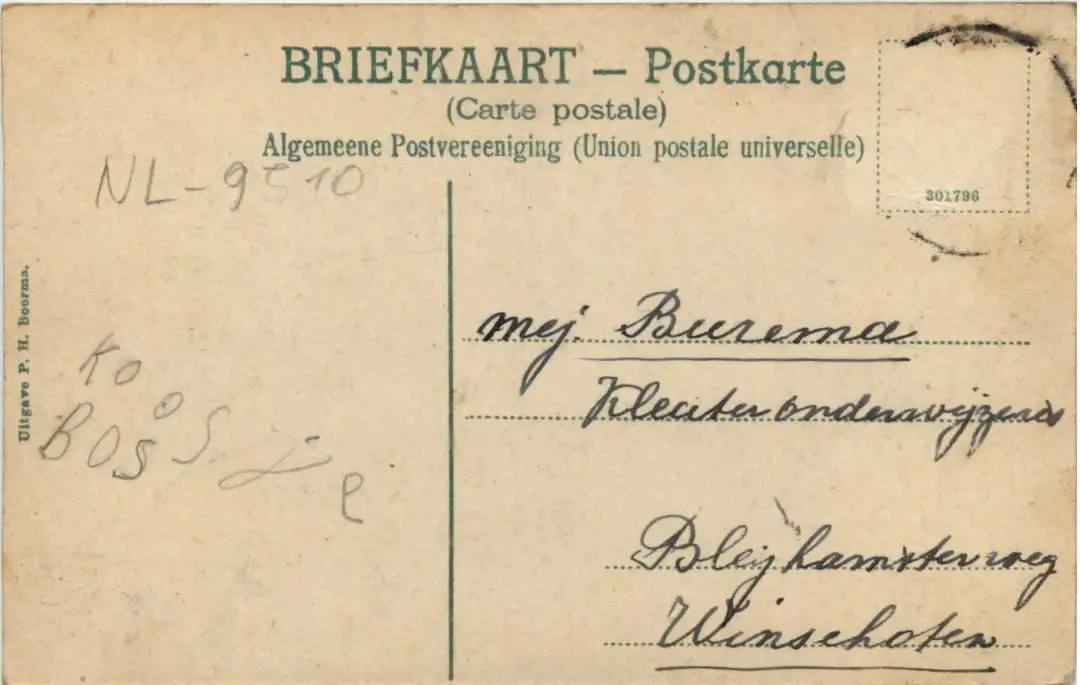 BRIEFKAART — Postkarte
(Carte postale)
Algemeene Postvereeniging (Union postale universelle)
301796
NL-9510
Uitgave P. H. Boerma.
mej. Burema
Kleuteronderwijzeres
Bleijhamsterweg
Winschoten
Ko
o
BOSS
e